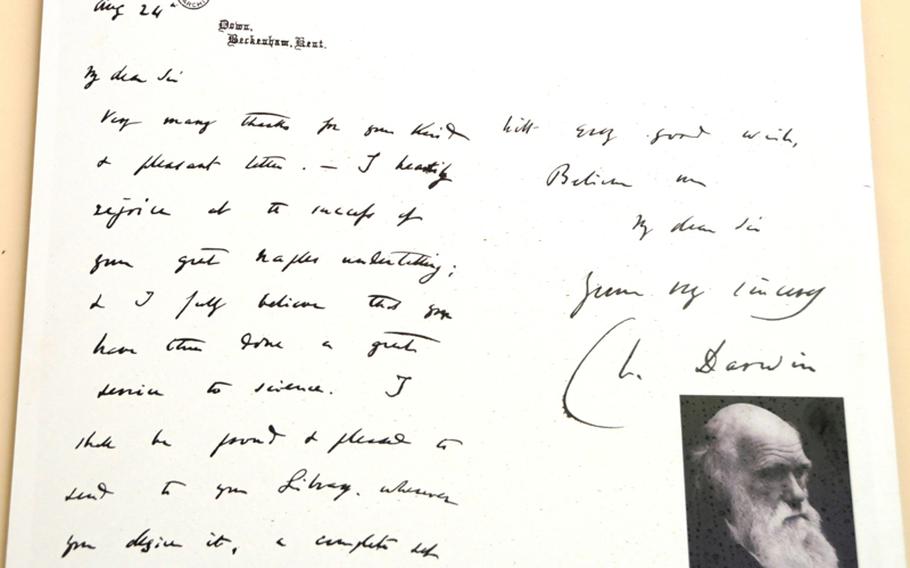 Aug 24th
ARCHI
Down,
Beckenham, Kent.
My dear Sir
Very many thanks for your kind
& pleasant letter. — I heartily
rejoice at the success of
your great Naples undertaking;
& I fully believe that you
have thus done a great
service to science. I
shall be proud & pleased to
send to your Library, whenever
you desire it, a complete set
With every good wish,
Believe me
My dear Sir
Yours very sincerely
Ch. Darwin